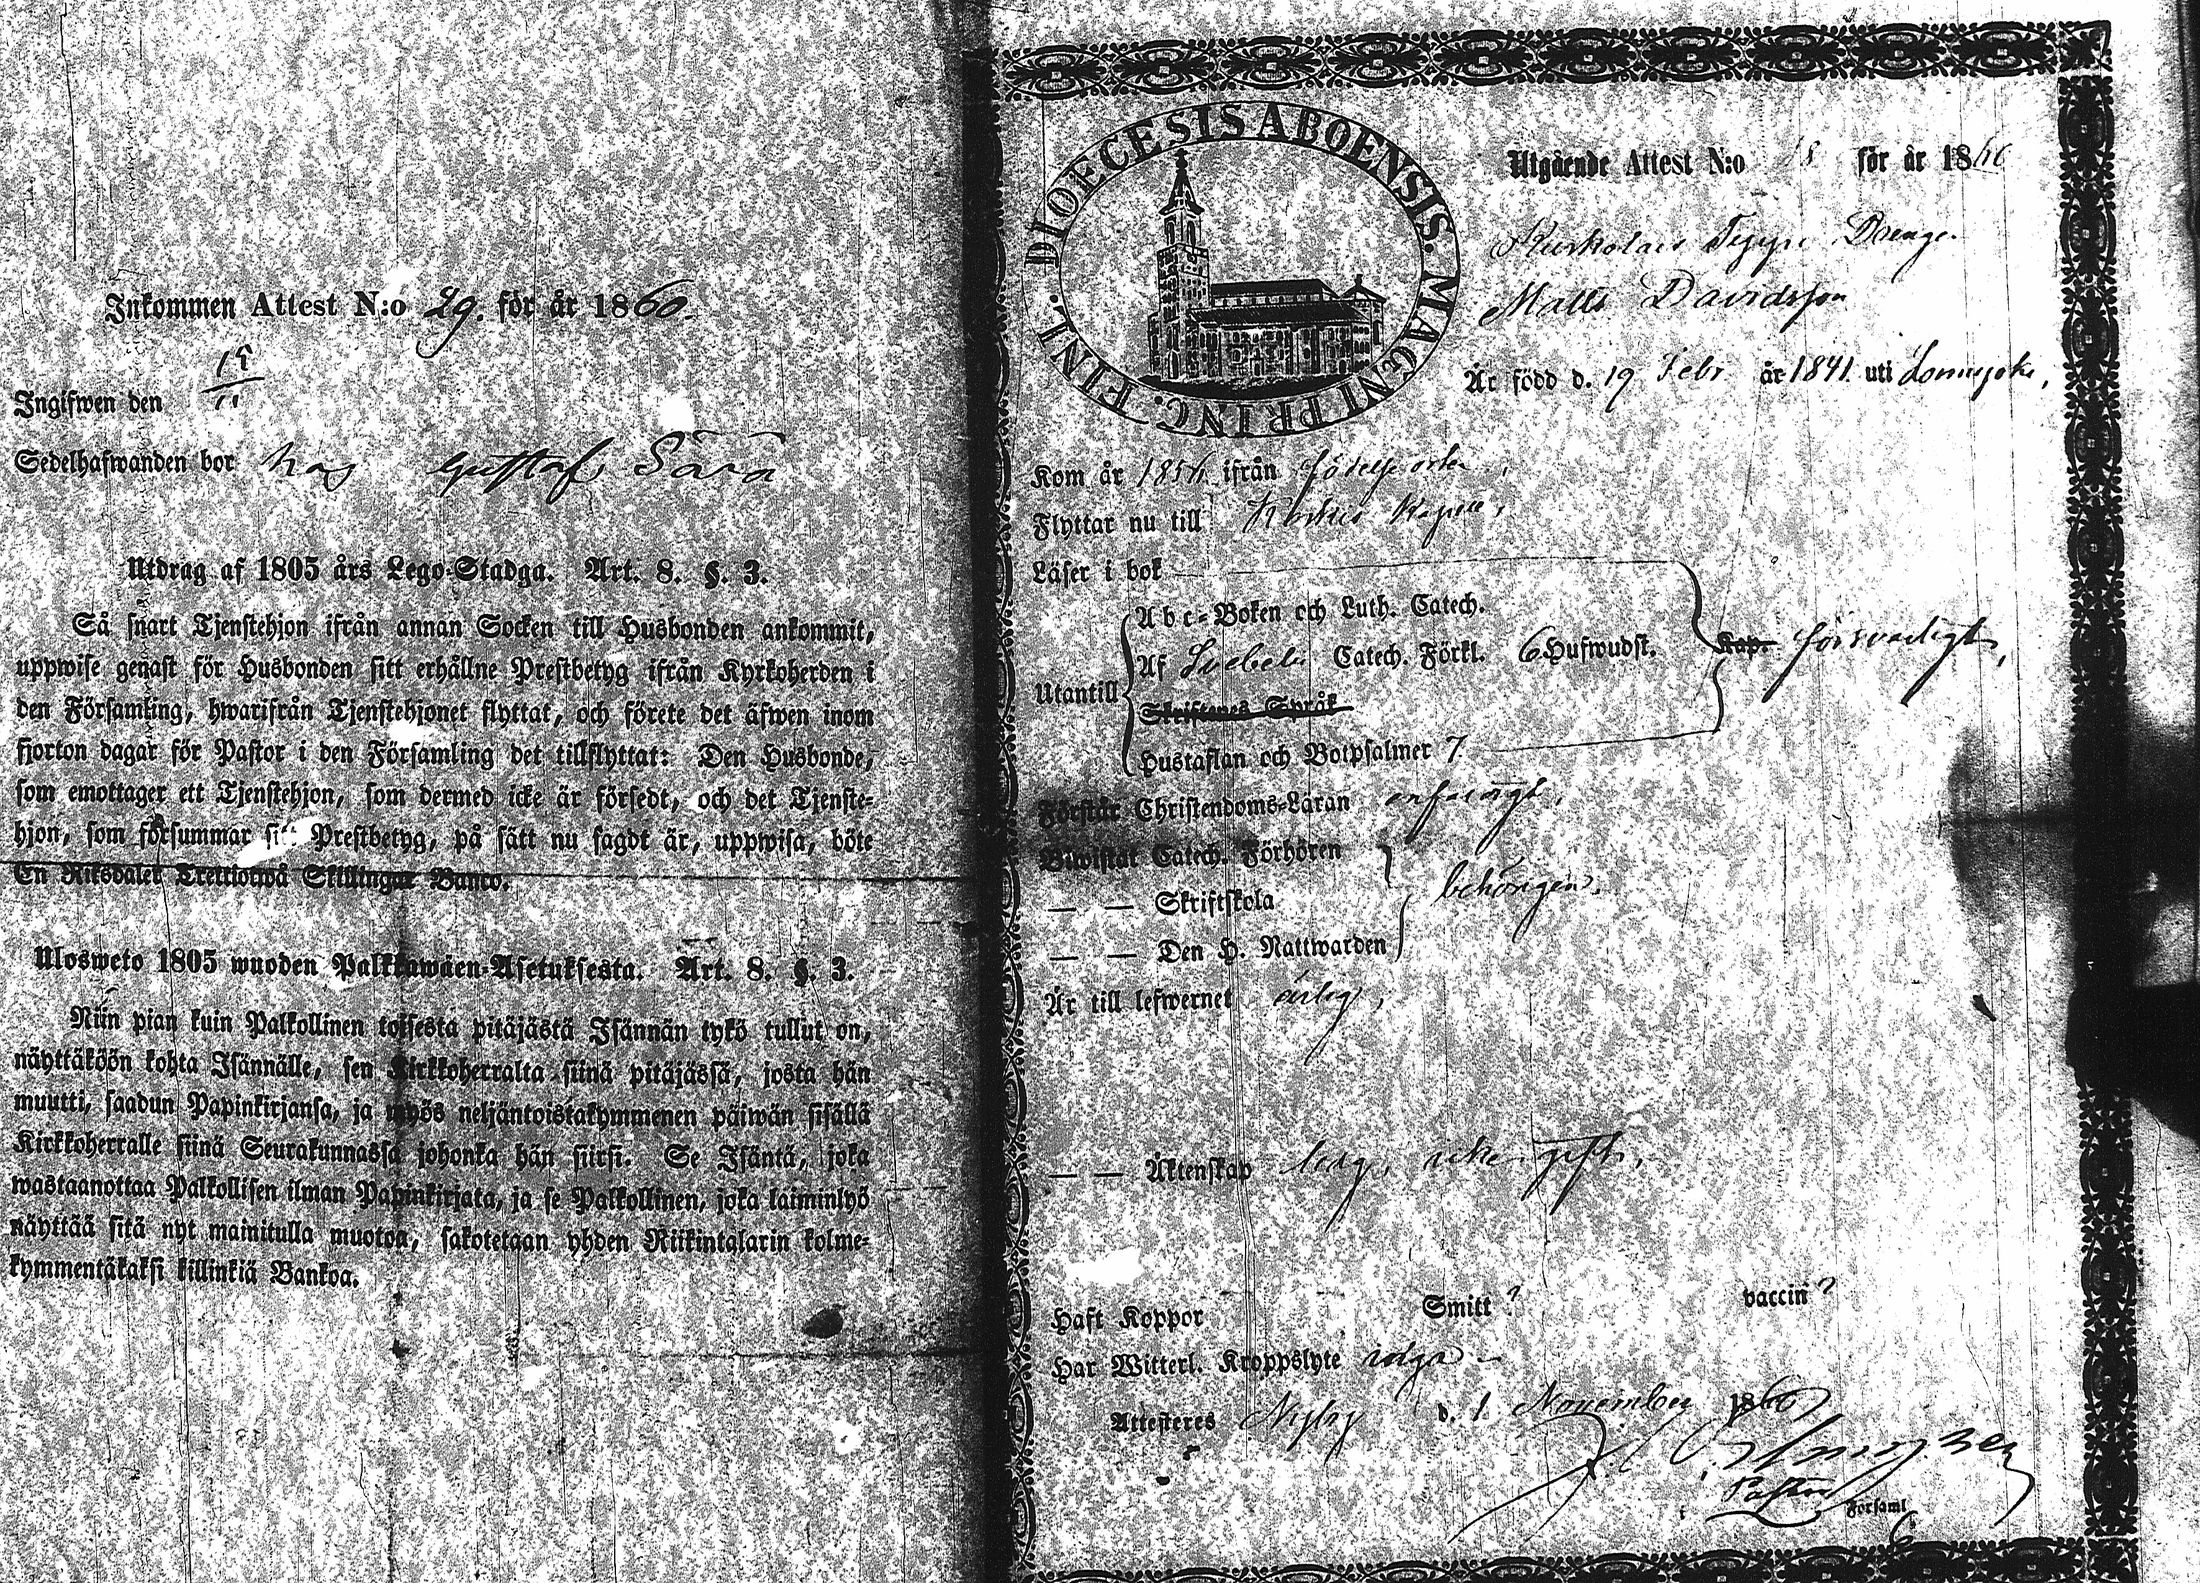 Inkommen Attest N:o 29. för år 1860.
19
11
Ingifwen den
Sedelhafwanden bor hos Gustaf Särä
Utdrag af 1805 års Lego-Stadga. Art. 8. §. 3.
Så snart Tjenstehjon ifrån annan Socken till Husbonden ankommit,
uppwise genast för Husbonden sitt erhållne Prestbetyg ifrån Kyrkoherden i
den Församling, hwarifrån Tjenstehjonet flyttat, och förete det äfwen inom
fjorton dagar för Pastor i den Församling det tillflyttat: Den Husbonde,
som emottager ett Tjenstehjon, som dermed icke är försedt, och det Tjenste-
hjon, som försummar sitt Prestbetyg, på sätt nu sagdt är, uppwisa, böte
En Riksdaler Trettiotwå Skillingar Banco.
Ulosweto 1805 wuoden Palkkawäen-Asetuksesta. Art. 8. §. 3.
Niin pian kuin Palkollinen toisesta pitäjästä Isännän tykö tullut on,
näyttäköön kohta Isännälle, sen Kirkkoherralta siinä pitäjässä, josta hän
muutti, saadun Papinkirjansa, ja myös neljäntoistakymmenen päiwän sisällä
Kirkkoherralle siinä Seurakunnassa johonka hän siirsi. Se Isäntä, joka
wastaanottaa Palkollisen ilman Papinkirjata, ja se Palkollinen, joka laiminlyö
näyttää sitä nyt mainitulla muotoa, sakotetaan yhden Riikintalarin kolme-
kymmentäkaksi killinkiä Bankoa.
DIOECESIS ABOENSIS. MAGNI PRINC. FINL.
Utgående Attest N:o för år 1860
Drenge
Matts Davidsson
Är född d. 19 Febr. år 1841. uti
Kom år ifrån födelse orten,
Flyttar nu till Koskis Kapell,
Läser i bok
Utantill
Abc-Boken och Luth. Catech.
Af Svebelii Catech. Förkl. 6 Hufwudst.
Skriftenes Språk
Hustaflan och Botpsalmer 7.
Kap. försvarligt,
Förstår Christendoms-Läran enfaldigt,
Biwistat Catech. Förhören
— — Skriftskola
— — Den H. Nattwarden
behörigen.
Är till lefwernet ärlig,
— — Äktenskap ledig,
Haft Koppor Smitt? vaccin?
Har Witterl. Kroppslyte inga
Attesteres Nyby d. 1 November 1860
Pastor
i Församl
6